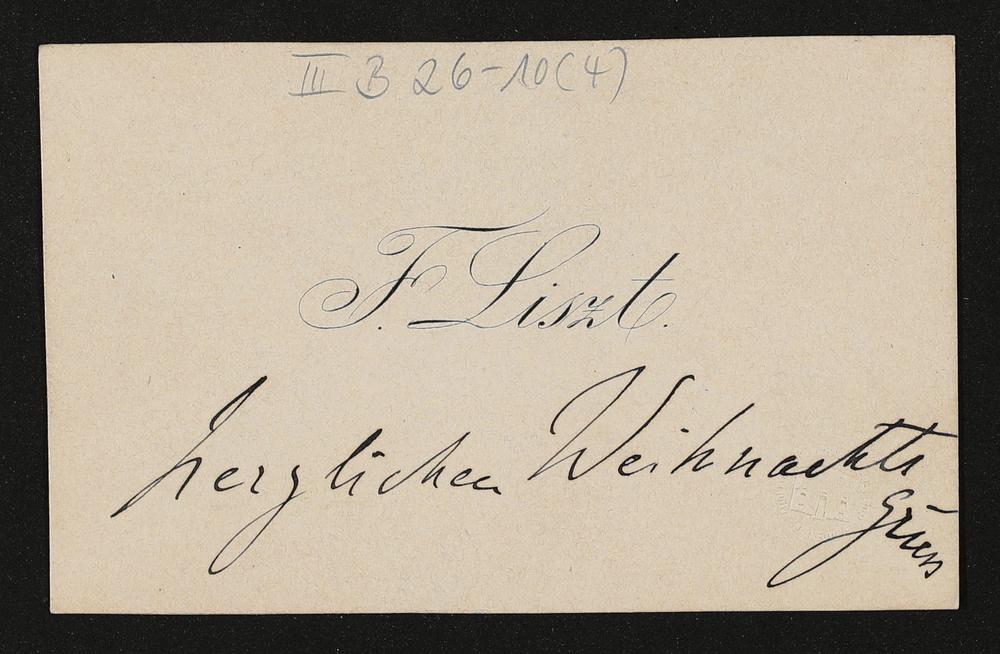 III B 26-10(4)
F. Liszt.
Herzlichen Weihnachts
Gruss